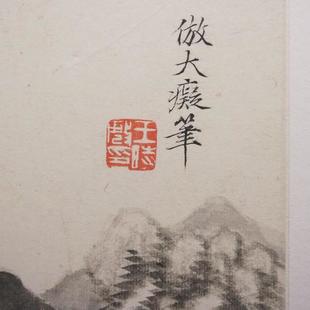 倣大癡筆
王時敏印